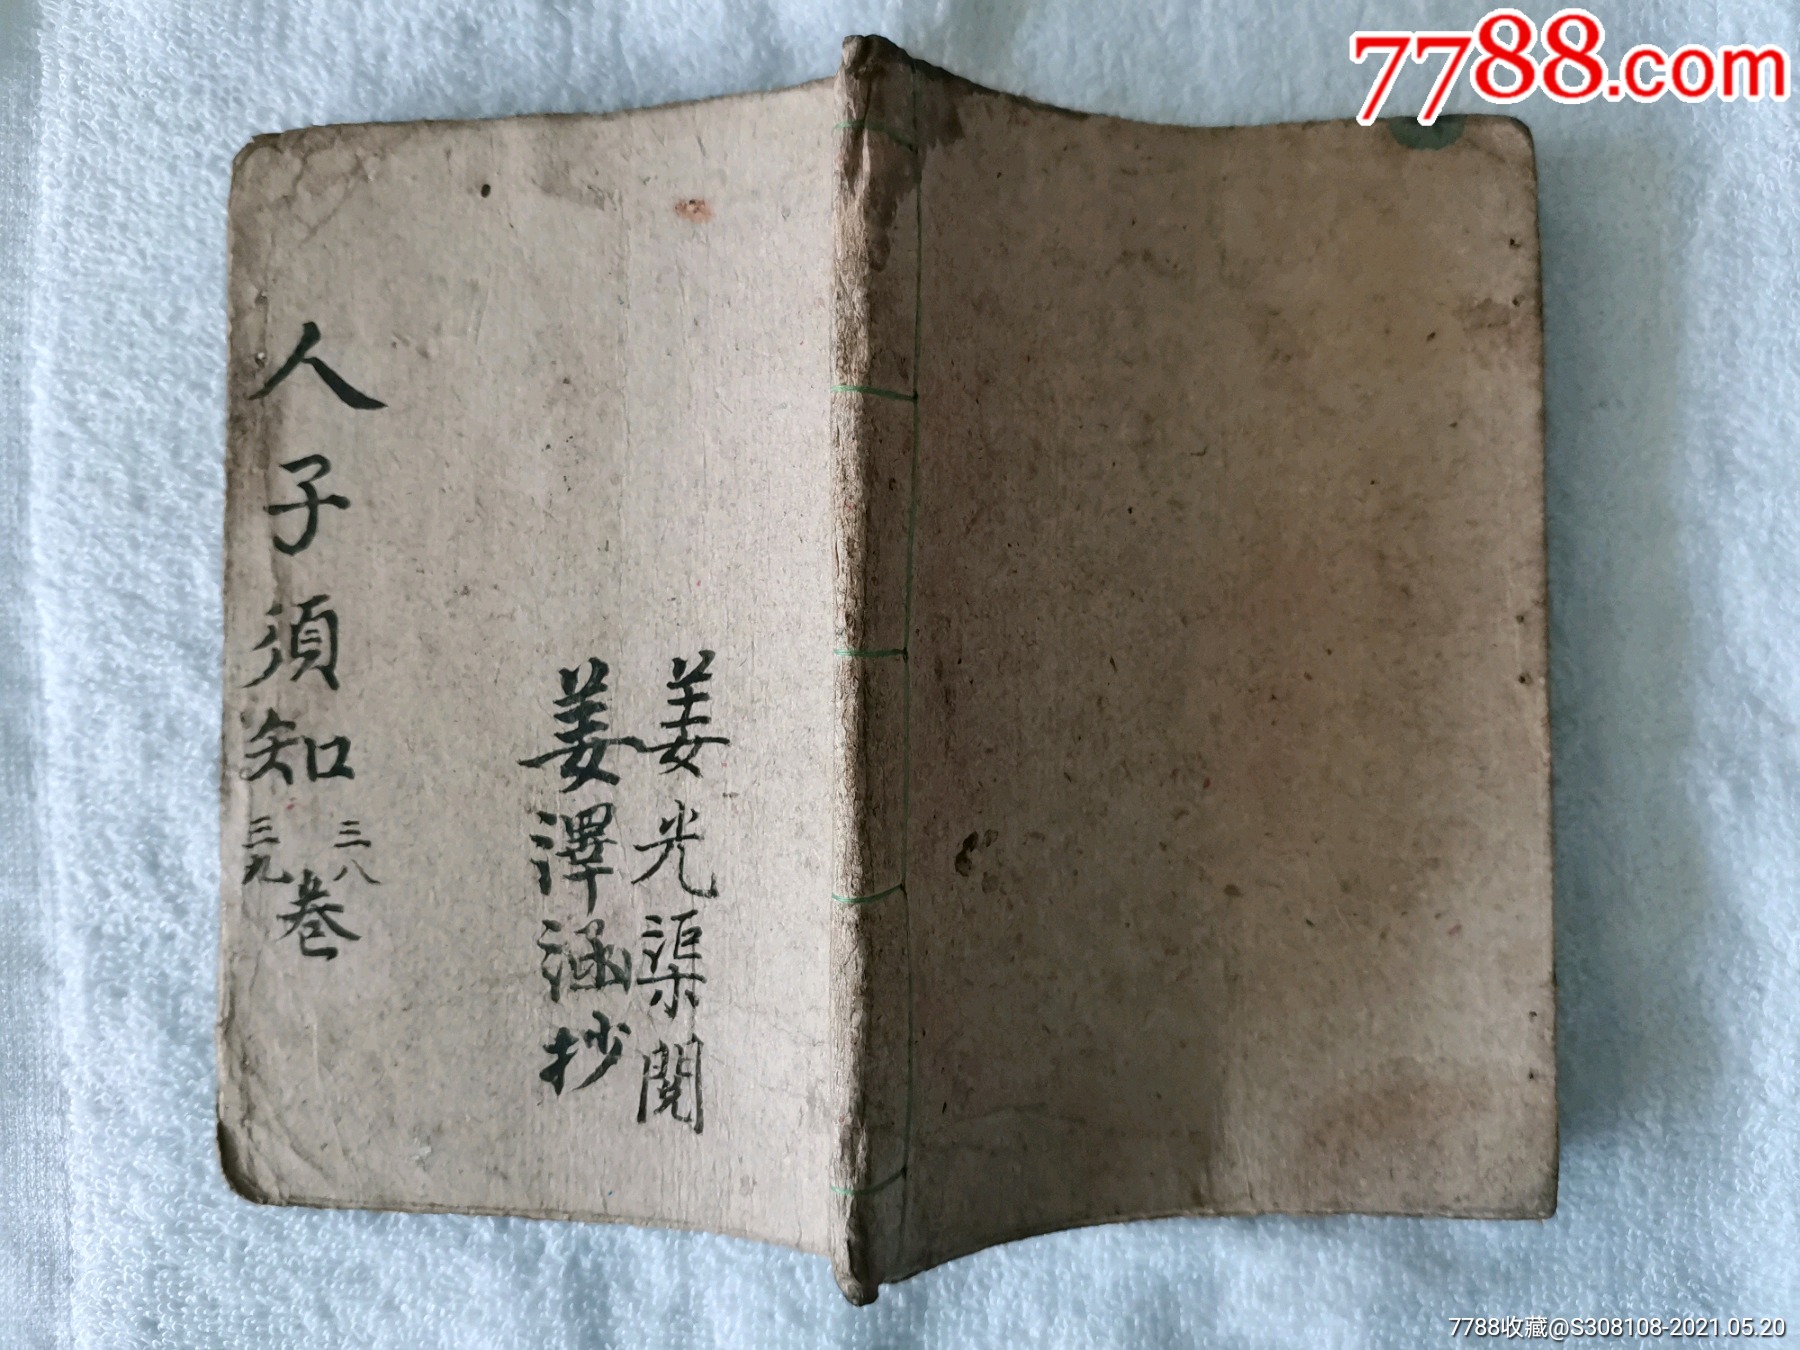 7788.com
姜光渠閱
姜澤涵抄
人子須知
三八
三九
卷
7788收藏@S308108-2021.05.20